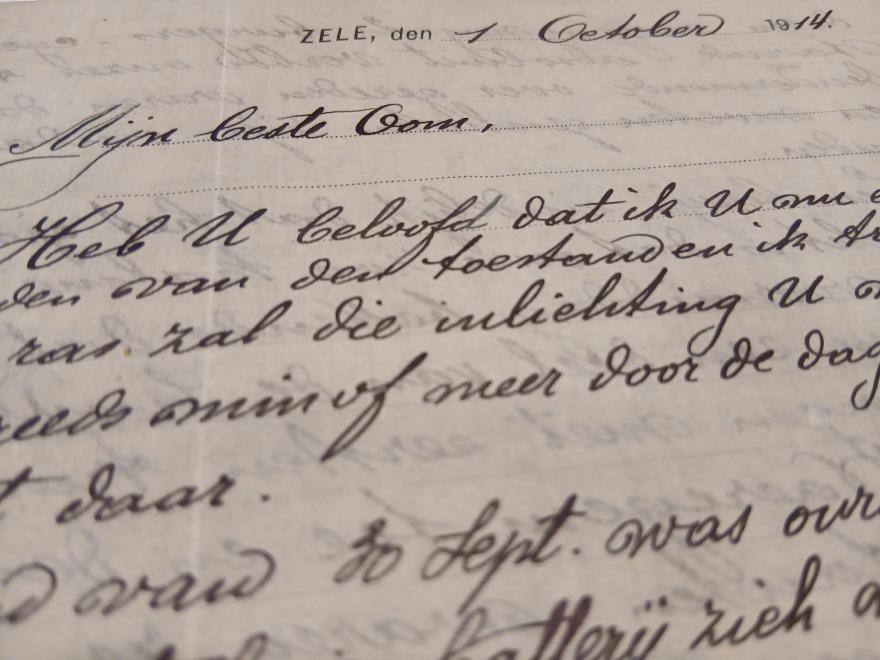 ZELE, den 1 October 1914.
Mijn beste Oom,
Heb U beloofd dat ik U nu
den van den toestand en ik
ras zal die inlichting U
reeds min of meer door de dag
t daar.
d vand 30 Sept. was
batterij zich